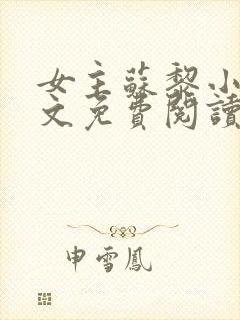 女主蘇黎小
文免費閱讀
申雪鳳